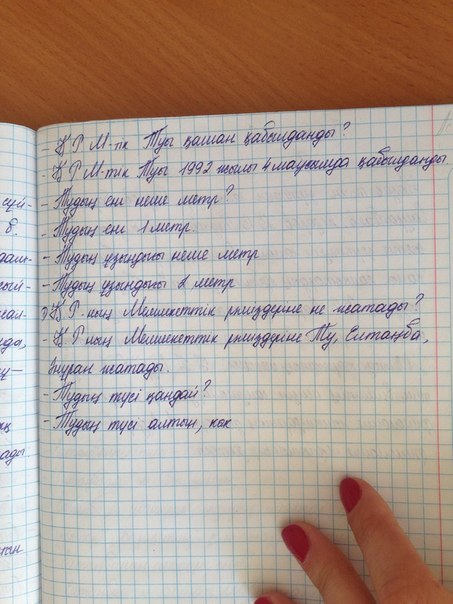 - ҚР М-тік Туы қашан қабылданды?
- ҚР М-тік Туы 1992 жылы 4 маусымда қабылданды
- Тудың ені неше метр?
- Тудың ені 1 метр.
- Тудың ұзындығы неше метр
- Тудың ұзындығы 2 метр
ҚР-ның Мемлекеттік рәміздеріне не жатады?
- ҚР-ның Мемлекеттік рәміздеріне Ту, Елтаңба,
Әнұран жатады.
- Тудың түсі қандай?
- Тудың түсі алтын, көк